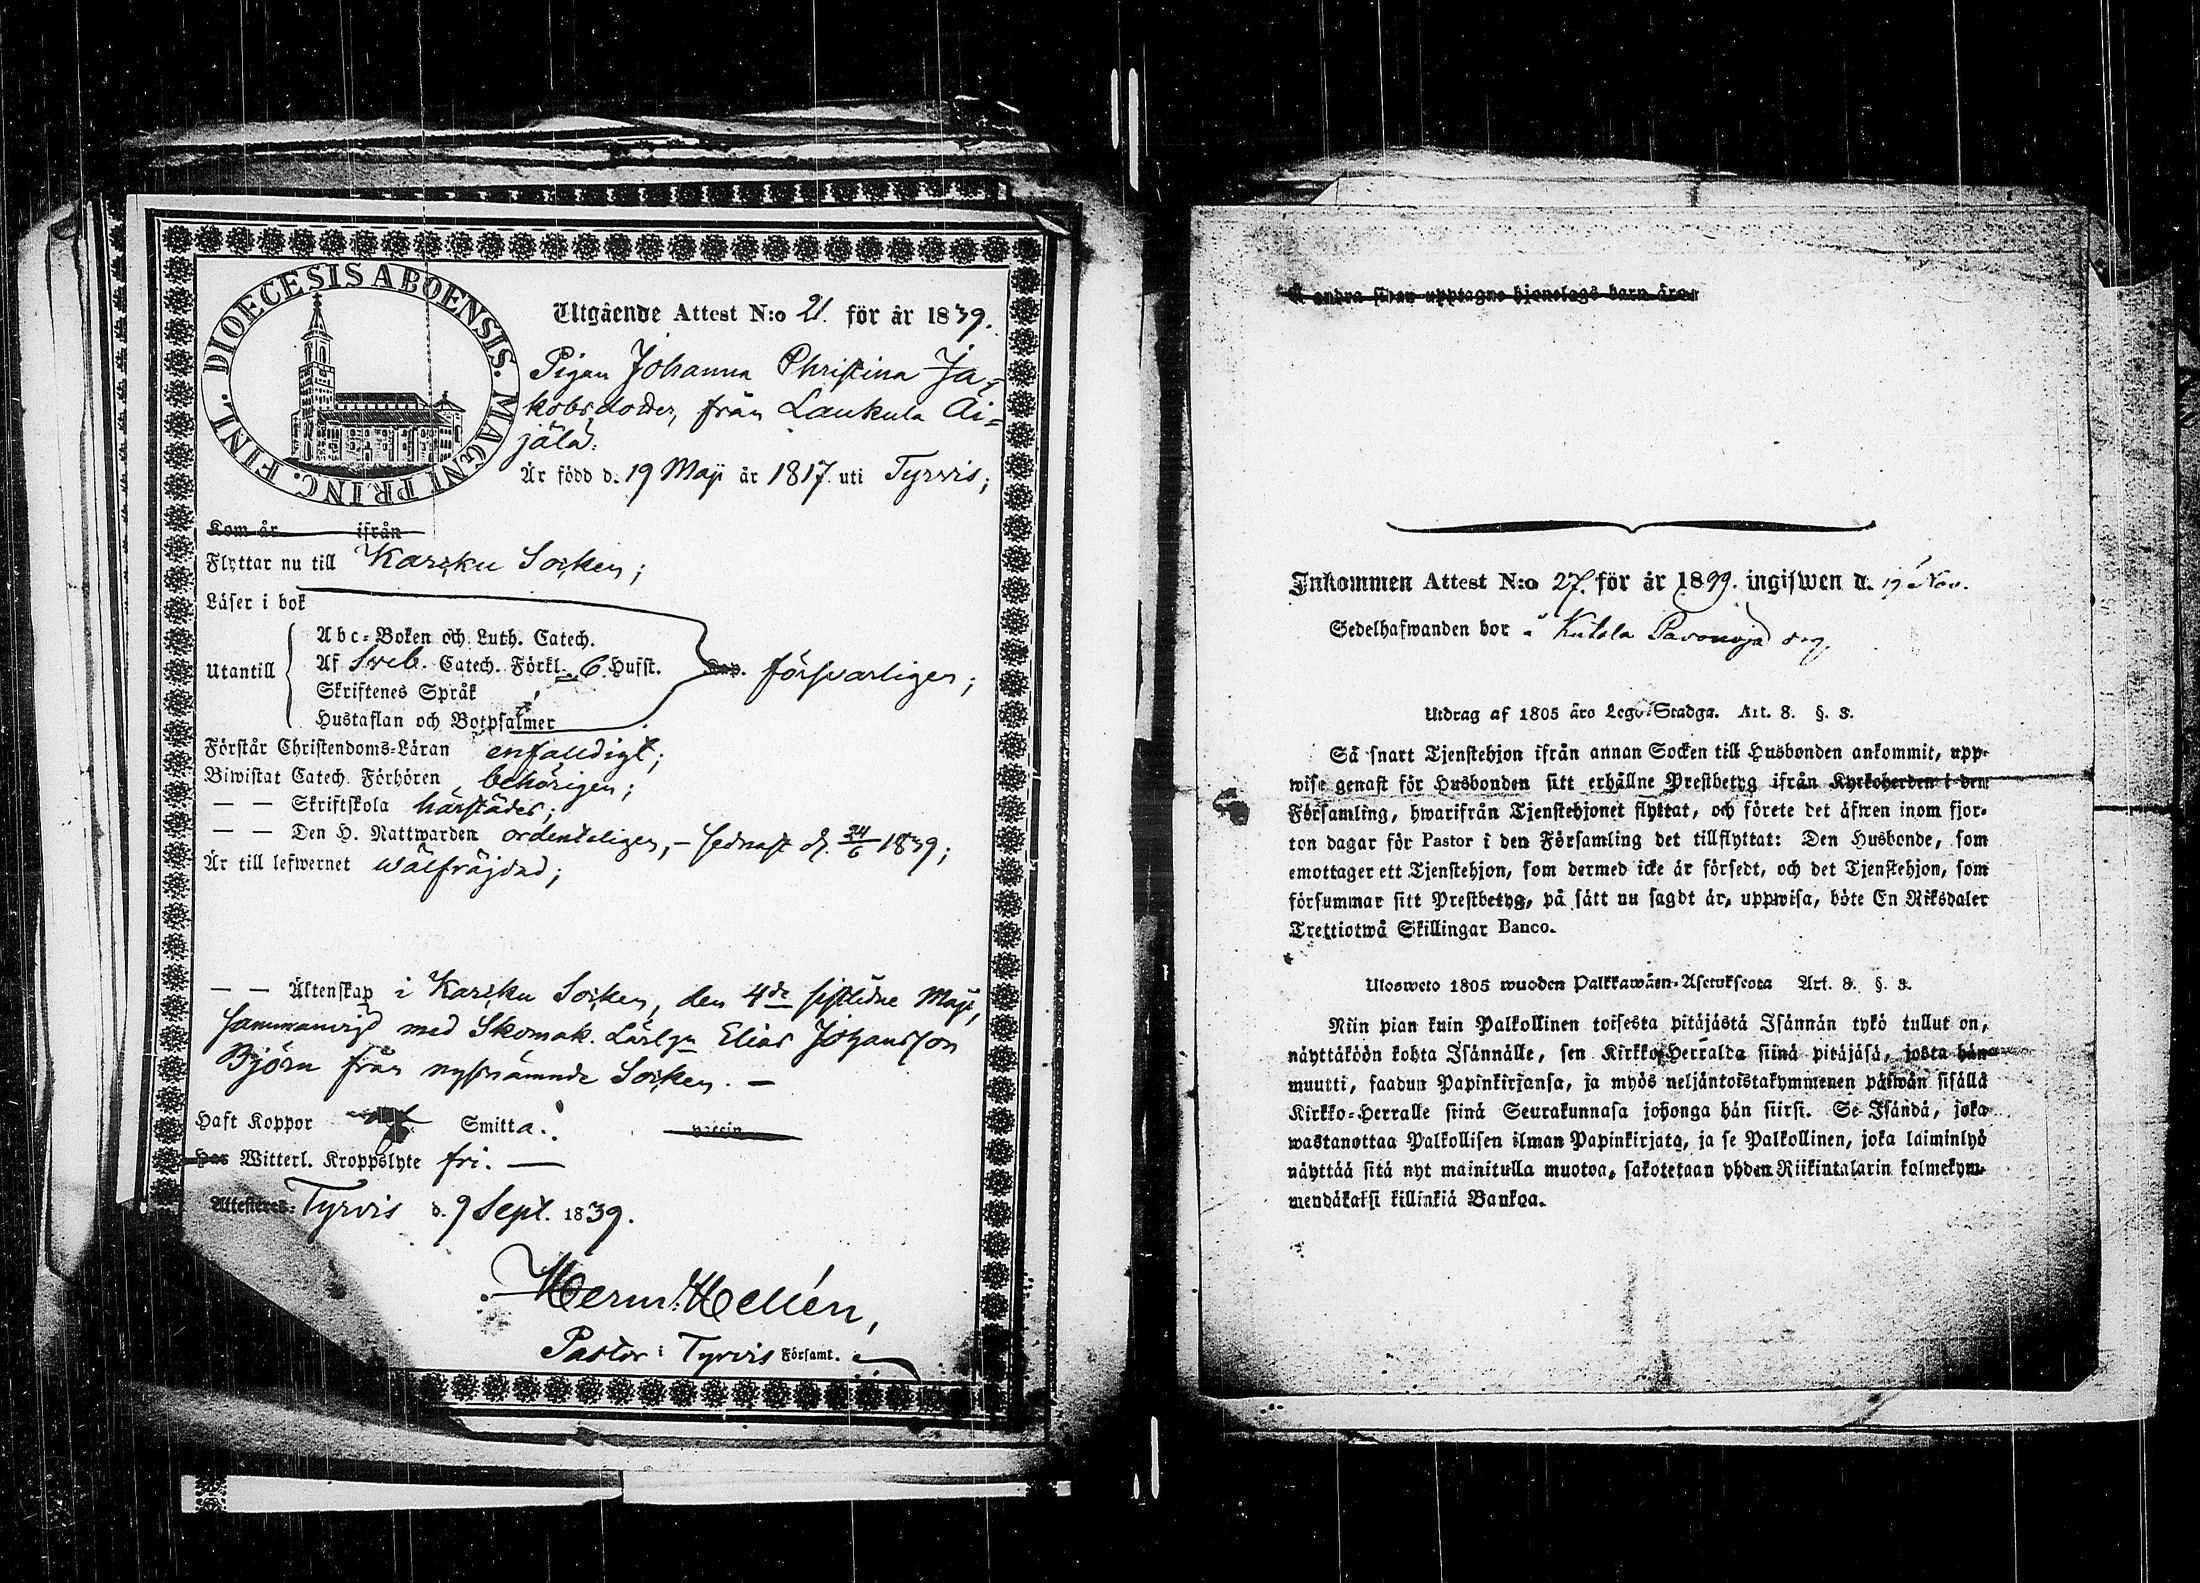 DIOECESIS ABOENSIS. MAGNI PRINC. FINL.
Utgående Attest N:o 21. för år 1839.
Pigan Johanna Christina Ja-
kobsdotter, från Laukula Äi-
jälä.
Är född d. 19 Maji år 1817 uti Tyrvis;
Kom år ifrån
Flyttar nu till Karkku Socken;
Läser i bok
Abc-Boken och Luth. Catech.
Utantill Af Catech. Förkl. Hufst. försvarligen;
Skriftenes Språk
Hustaflan och Botpsalmer
Förstår Christendoms-Läran enfalldigt;
Biwistat Catech. Förhören behörigen;
— — Skriftskola härstädes;
— — Den H. Nattwarden ordenteligen, – sednast d. 24/6 1839;
Är till lefwernet wälfräjdad;
— — Äktenskap i Karkku Socken, den 4de sistledne Maji,
sammanvigd med Skomak. Lärlgn Elias Johansson
Björn från nysnämnde Socken. —
Haft Koppor Smitta.
Har Witterl. Kroppslyte fri. —
Attesteres. Tyrvis d. 9 Sept. 1839.
Herm. Hellén,
Pastor i Tyrvis Församl.
Å andra sidan upptagne hjonelags barn äro:
Inkommen Attest N:o 27. för år 18 ingifwen d. Nov.
Sedelhafwanden bor
Utdrag af 1805 års Lego-Stadga. Art. 8. §. 3.
Så snart Tjenstehjon ifrån annan Socken till Husbonden ankommit, upp-
wise genast för Husbonden sitt erhållne Prestbetyg ifrån Kyrkoherden i den
Församling, hwarifrån Tjenstehjonet flyttat, och förete det äfwen inom fjor-
ton dagar för Pastor i den Församling det tillflyttat: Den Husbonde, som
emottager ett Tjenstehjon, som dermed icke är försedt, och det Tjenstehjon, som
försummar sitt Prestbetyg, på sätt nu sagdt är, uppwisa, böte En Riksdaler
Trettiotwå Skillingar Banco.
Ulosweto 1805 wuoden Palkkawäen-Asetuksesta Art. 8. §. 3.
Niin pian kuin Palkollinen toisesta pitäjästä Isännän tykö tullut on,
näyttäköön kohta Isännälle, sen Kirkko-Herralda siinä pitäjäsä, josta hän
muutti, saadun Papinkirjansa, ja myös neljäntoistakymmenen päiwän sisällä
Kirkko-Herralle siinä Seurakunnasa johonga hän siirsi. Se Isändä, joka
wastanottaa Palkollisen ilman Papinkirjata, ja se Palkollinen, joka laiminlyö
näyttää sitä nyt mainitulla muotoa, sakotetaan yhden Riikintalarin kolmekym-
mendäkaksi killinkiä Bankoa.